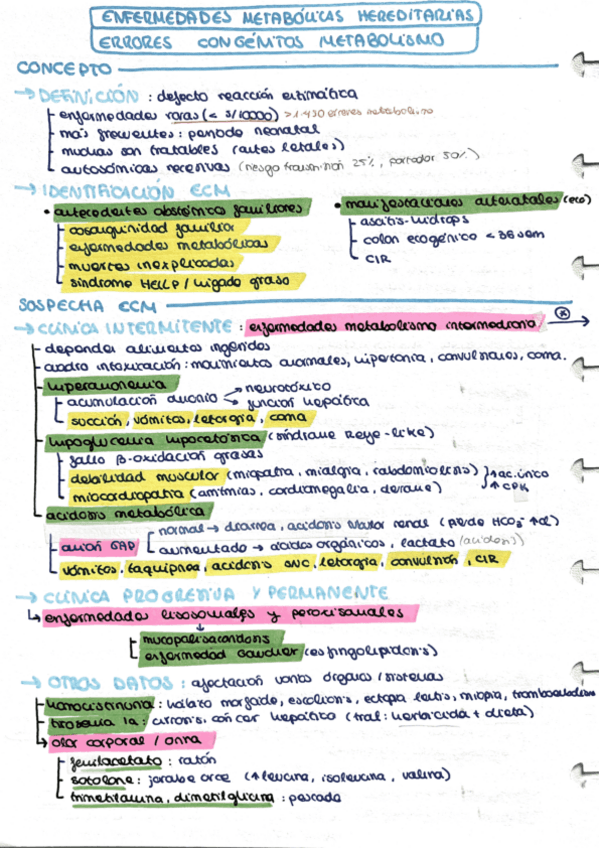 ENFERMEDADES METABÓLICAS HEREDITARIAS
ERRORES CONGÉNITOS METABOLISMO
CONCEPTO
→ DEFINICIÓN : defecto reacción enzimática
enfermedades raras (< 5/10000) > 1.450 errores metabolismo
más frecuentes : periodo neonatal
muchas son tratables (antes letales)
autosómicas recesivas (riesgo transmisión 25%, portador 50%)
→ IDENTIFICACIÓN ECM
• antecedentes obstétricos familiares
consanguinidad familiar
enfermedades metabólicas
muertes inexplicadas
síndrome HELLP / hígado graso
• manifestaciones antenatales (eco)
ascitis-hidrops
colon ecogénico < 36 sem
CIR
SOSPECHA ECM
→ CLÍNICA INTERMITENTE : enfermedades metabolismo intermediario (*) →
dependen alimentos ingeridos
cuadro intoxicación : movimientos anormales, hipertonía, convulsiones, coma.
hiperamonemia
acumulación amonio → neurotóxico
→ función hepática
succión, vómitos, letargia, coma
hipoglucemia hipocetósica (síndrome Reye-like)
fallo β-oxidación grasas
debilidad muscular (miopatía, mialgia, rabdomiolisis) } ↑ ac. úrico
miocardiopatía (arritmias, cardiomegalia, derrame) ↑ CPK
acidosis metabólica
anión GAP
normal → diarrea, acidosis tubular renal (pierde HCO3⁻ ↑Cl)
aumentado → ácidos orgánicos, lactato (acidosis)
vómitos, taquipnea, acidosis SNC, letargia, convulsión, CIR
→ CLÍNICA PROGRESIVA Y PERMANENTE
↳ enfermedades lisosomales y peroxisomales
↓
mucopolisacaridosis
enfermedad Gaucher (esfingolipidosis)
→ OTROS DATOS : afectación varios órganos / sistemas
homocistinuria : hábito marfoide, escoliosis, ectopia lentis, miopía, tromboembolismo
tirosemia 1a : cirrosis, cáncer hepático (trat : herbicida + dieta)
olor corporal / orina
fenilacetato : ratón
sotolone : jarabe arce (↑ leucina, isoleucina, valina)
trimetilamina, dimetilglicina : pescado